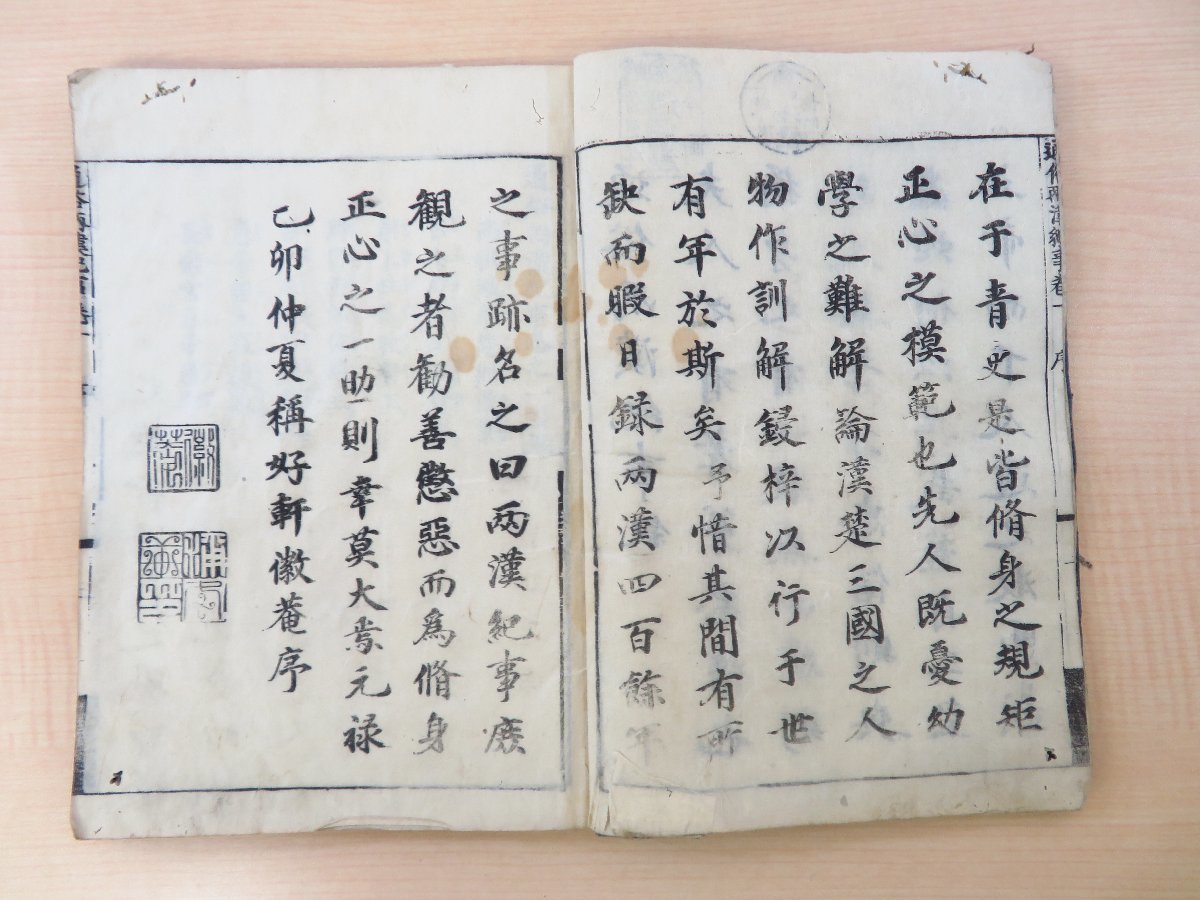 在于青史是皆脩身之規矩
正心之模範也先人既憂幼
學之難解論漢楚三國之人
物作訓解鋟梓以行于世
有年於斯矣予惜其間有所
缺而暇日録兩漢四百餘年
之事跡名之曰兩漢紀事庶
觀之者勸善懲惡而為脩身
正心之一助則幸莫大焉元禄
己卯仲夏稱好軒徽菴序